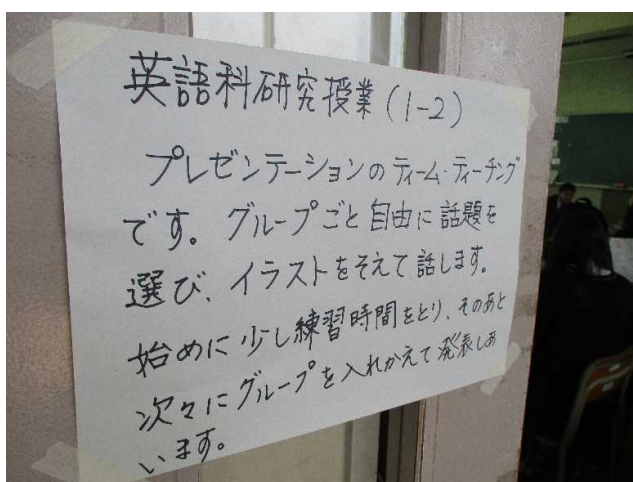 英語科研究授業(1-2)
プレゼンテーションのティーム・ティーチング
です。グループごと自由に話題を
選び、イラストをそえて話します。
始めに少し練習時間をとり、そのあと
次々にグループを入れかえて発表しあ
います。